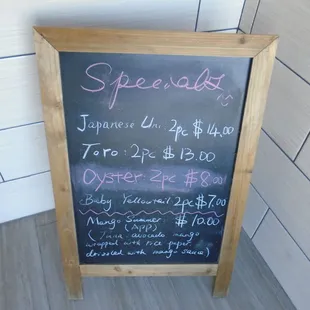 Specials
Japanese Uni 2pc $14.00
Toro 2pc $13.00
Oyster 2pc $8.00
Baby Yellowtail 2pc $7.00
Mango Summer $10.00
(App)
(Tuna avocado mango
wrapped with rice paper
drizzled with mango sauce)